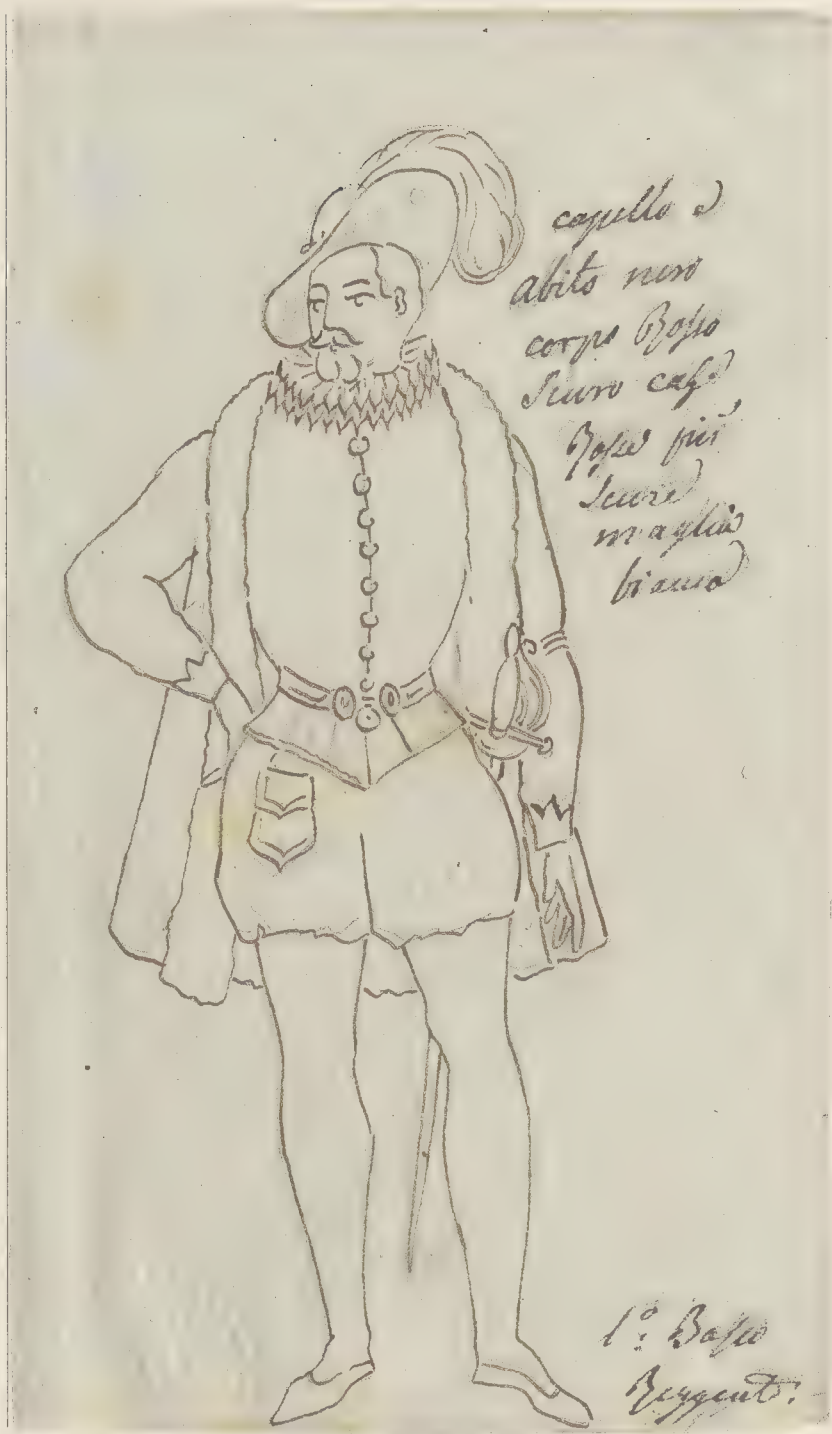 capello e
abito nero
corpo Rosso
scuro calze
Rosse più
scure
maglia
bianca
1º: Basso